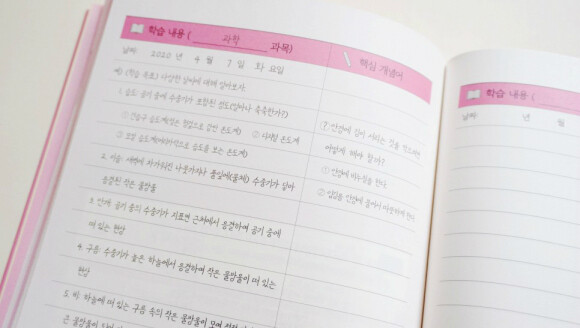 학습 내용 ( 과학 과목)
핵심 개념어
날짜: 2020 년 4 월 7 일 화 요일
예) (학습 목표) 다양한 날씨에 대해 알아보자.
1. 습도: 공기 중에 수증기가 포함된 정도(얼마나 축축한가?)
① 건습구 습도계(젖은 헝겊으로 감싼 온도계) ② 디지털 온도계
③ 모발 습도계(머리카락으로 습도를 재는 온도계)
2. 이슬: 새벽에 차가워진 나뭇가지나 풀잎에 수증기가 닿아
응결된 작은 물방울
3. 안개: 공기 중의 수증기가 지표면 근처에서 응결하여 공기 중에
떠 있는 현상
4. 구름: 수증기가 높은 하늘에서 응결하여 작은 물방울이 떠 있는
현상
5. 비: 하늘에 떠 있는 구름 속의 작은 물방울이 모여
은 물방울이
안경에 김이 서리는 것을 막으려면
어떻게 해야 할까?
① 안경에 비누칠을 한다
② 안경에 따뜻하게 한다
학습 내용 (
날짜: 년 월